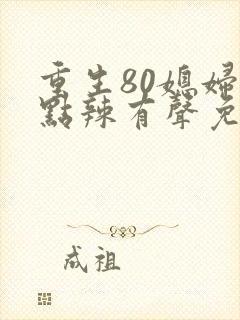 重生80媳婦
點辣有聲免
成祖